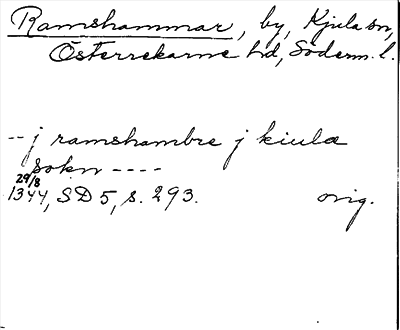 Ramshammar, by, Kjula sn,
Österrekarne hd, Söderm. l.
-- j ramshambre j kiulæ
sokn ----
29/8
1344, SD 5, s. 293. orig.